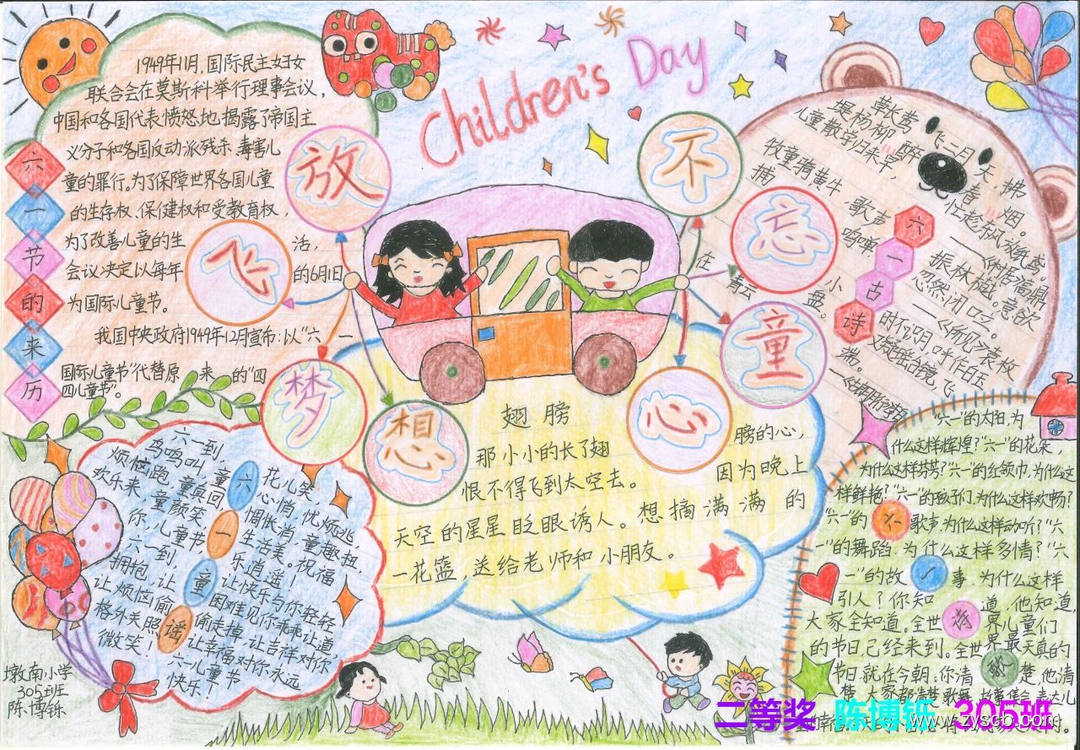 Children's Day
1949年11月,国际民主妇女
联合会在莫斯科举行理事会议,
中国和各国代表愤怒地揭露了帝国主
义分子和各国反动派残杀、毒害儿
童的罪行。为了保障世界各国儿童
的生存权、保健权和受教育权,
为了改善儿童的生活,
会议决定以每年的6月1日
为国际儿童节。
我国中央政府1949年12月宣布:以“六一
国际儿童节”代替原来的“四
四儿童节”。
六一节的来历
放飞梦想
不忘童心
六一古诗
草长莺飞二月天,拂
堤杨柳醉春烟。
儿童散学归来早,忙趁东风放纸鸢。
牧童骑黄牛,歌声振林樾。意欲
捕鸣蝉,忽然闭口立。
小时不识月,呼作白玉
盘。又疑瑶台镜,飞
在青云端。
翅膀
那小小的长了翅膀的心,
恨不得飞到太空去。因为晚上
天空的星星眨眼诱人。想摘满满的
一花篮,送给老师和小朋友。
六一童谣
六一到
花儿笑
鸟鸣叫
心情悄
烦恼跑
欢乐来
童真回
童颜笑
忧烦逃
惆怅消
童趣扭
你儿童节
生活美
祝福
乐逍遥!
六一到,
让快乐与你轻轻
拥抱,让困难见你乖乖让道
让烦恼偷偷走掉,让吉祥对你
格外关照,让幸福对你永远
微笑!六一儿童节
快乐!
“六一”的太阳,为
什么这样辉煌?“六一”的花朵,
为什么这样芬芳?“六一”的红领巾,为什么这
样鲜艳?“六一”的孩子们,为什么这样欢畅?
“六一”的歌声,为什么这样动听?“六
一”的舞蹈,为什么这样多情?“六
一”的故事,为什么这样
引人?你知道,他知道,
大家全知道。全世界儿童们
的节日已经来到。全世界最天真的
节日就在今朝。你清楚,他清
楚,大家都清楚。
六一将歌
墩南小学
305班
陈博铄
二等奖 陈博铄 305班
www.zyscb.com